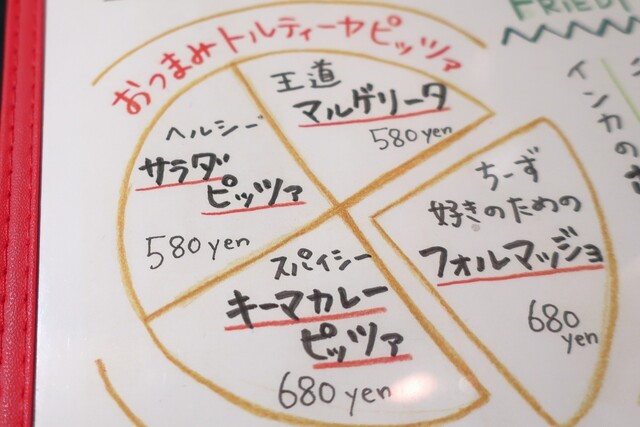 おつまみトルティーヤピッツァ
王道
マルゲリータ
580 yen
ヘルシー
サラダ
ピッツァ
580 yen
ちーず
好きのための
フォルマッジョ
680
yen
スパイシー
キーマカレー
ピッツァ
680 yen
インカの